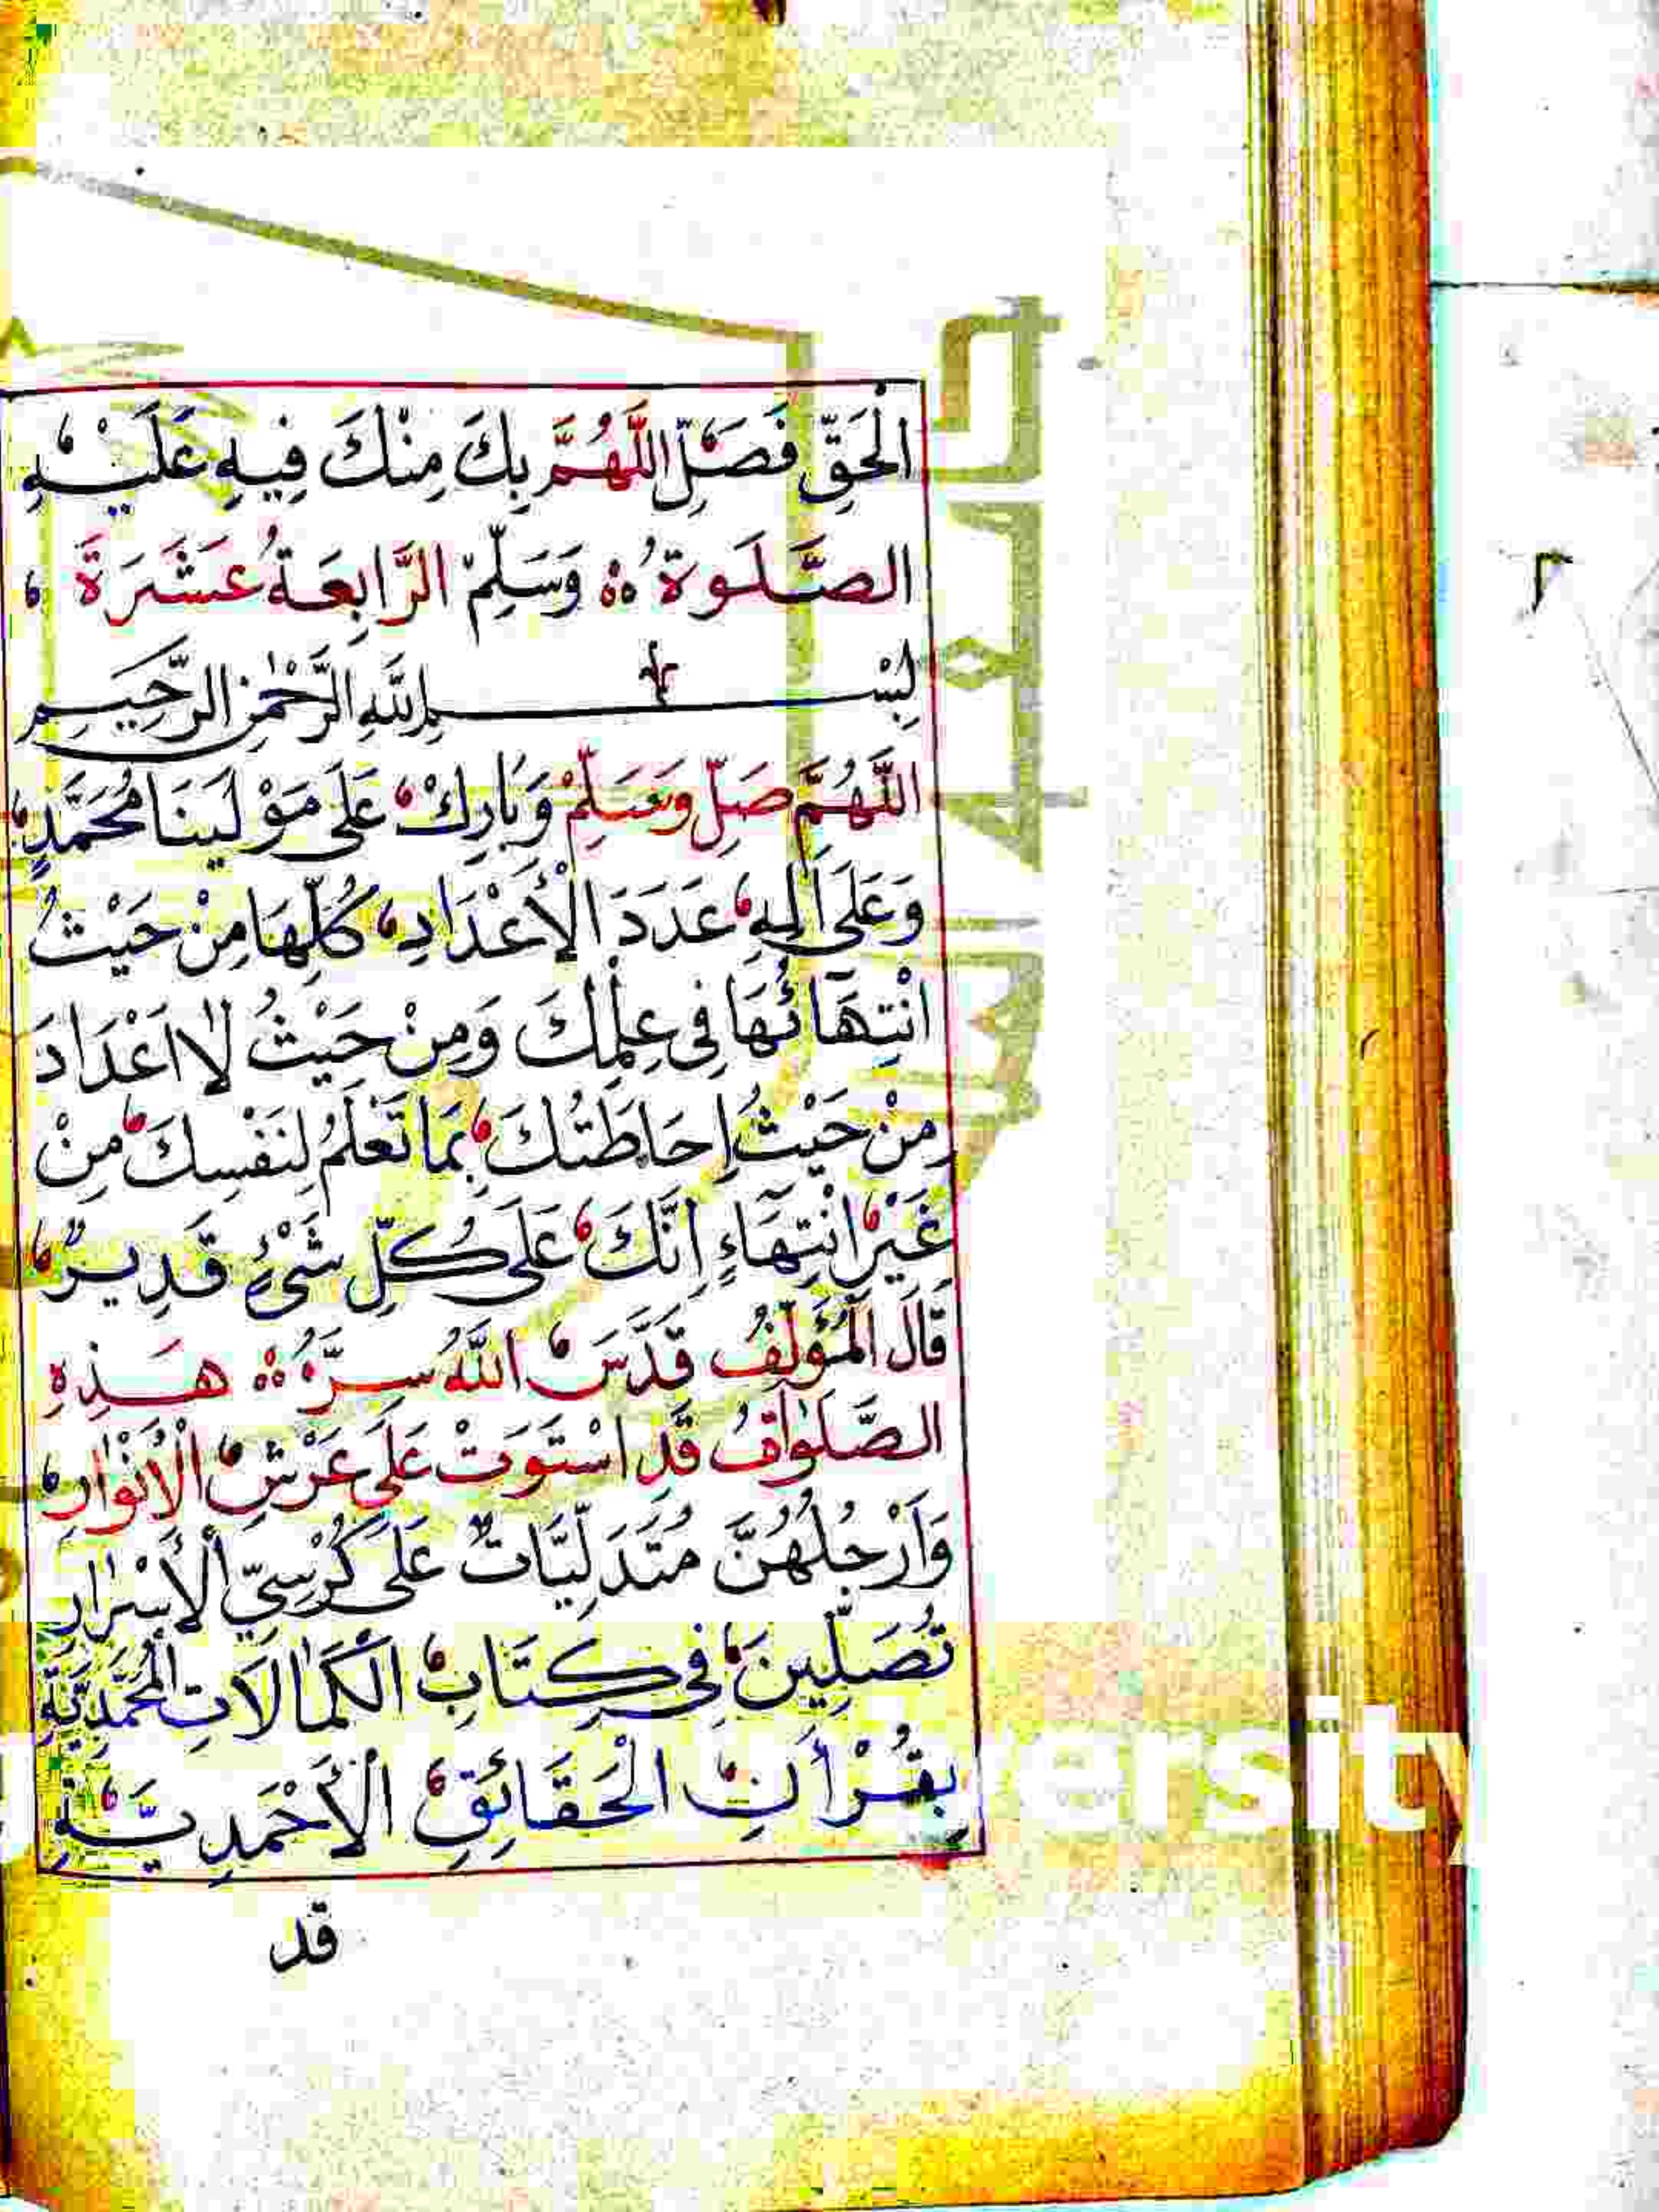 الْحَقِّ فَصَلِّ اللَّهُمَّ بِكَ مِنْكَ فِيهِ عَلَيْهِ
وَسَلِّمْ الصَّلَوةُ الرَّابِعَةُ عَشَرَةَ
بِسْمِ اللَّهِ الرَّحْمَنِ الرَّحِيمِ
اللَّهُمَّ صَلِّ وَسَلِّمْ وَبَارِكْ عَلَى مَوْلَينَا مُحَمَّدٍ
وَعَلَى اَلِهِ عَدَدَ الْأَعْدَادِ كُلِّهَا مِنْ حَيْثُ
انْتِهَآئُهَا فِى عِلْمِكَ وَمِنْ حَيْثُ لَا اَعْدَادَ
مِنْ حَيْثُ اِحَاطَتُكَ بِمَا تَعْلَمُ لِنَفْسِكَ مِنْ
غَيْرِ انْتِهَآءٍ اِنَّكَ عَلَى كُلِّ شَىْءٍ قَدِيرٌ
قَالَ الْمُؤَلِّفُ قَدَّسَ اللَّهُ سِرَّهُ هَذِهِ
الصَّلَوَاتُ قَدِ اسْتَوَتْ عَلَى عَرْشِ الْاَنْوَارِ
وَاَرْجُلُهُنَّ مُتَدَلِّيَاتٌ عَلَى كُرْسِيِّ الْأَسْرَارِ
تُصَلِّينَ فِى كِتَابِ الْكَمَالَاتِ الْمُحَمَّدِيَّةِ
بِقُرْأَنِ الْحَقَائِقِ الْأَحْمَدِيَّةِ
قد
ersity